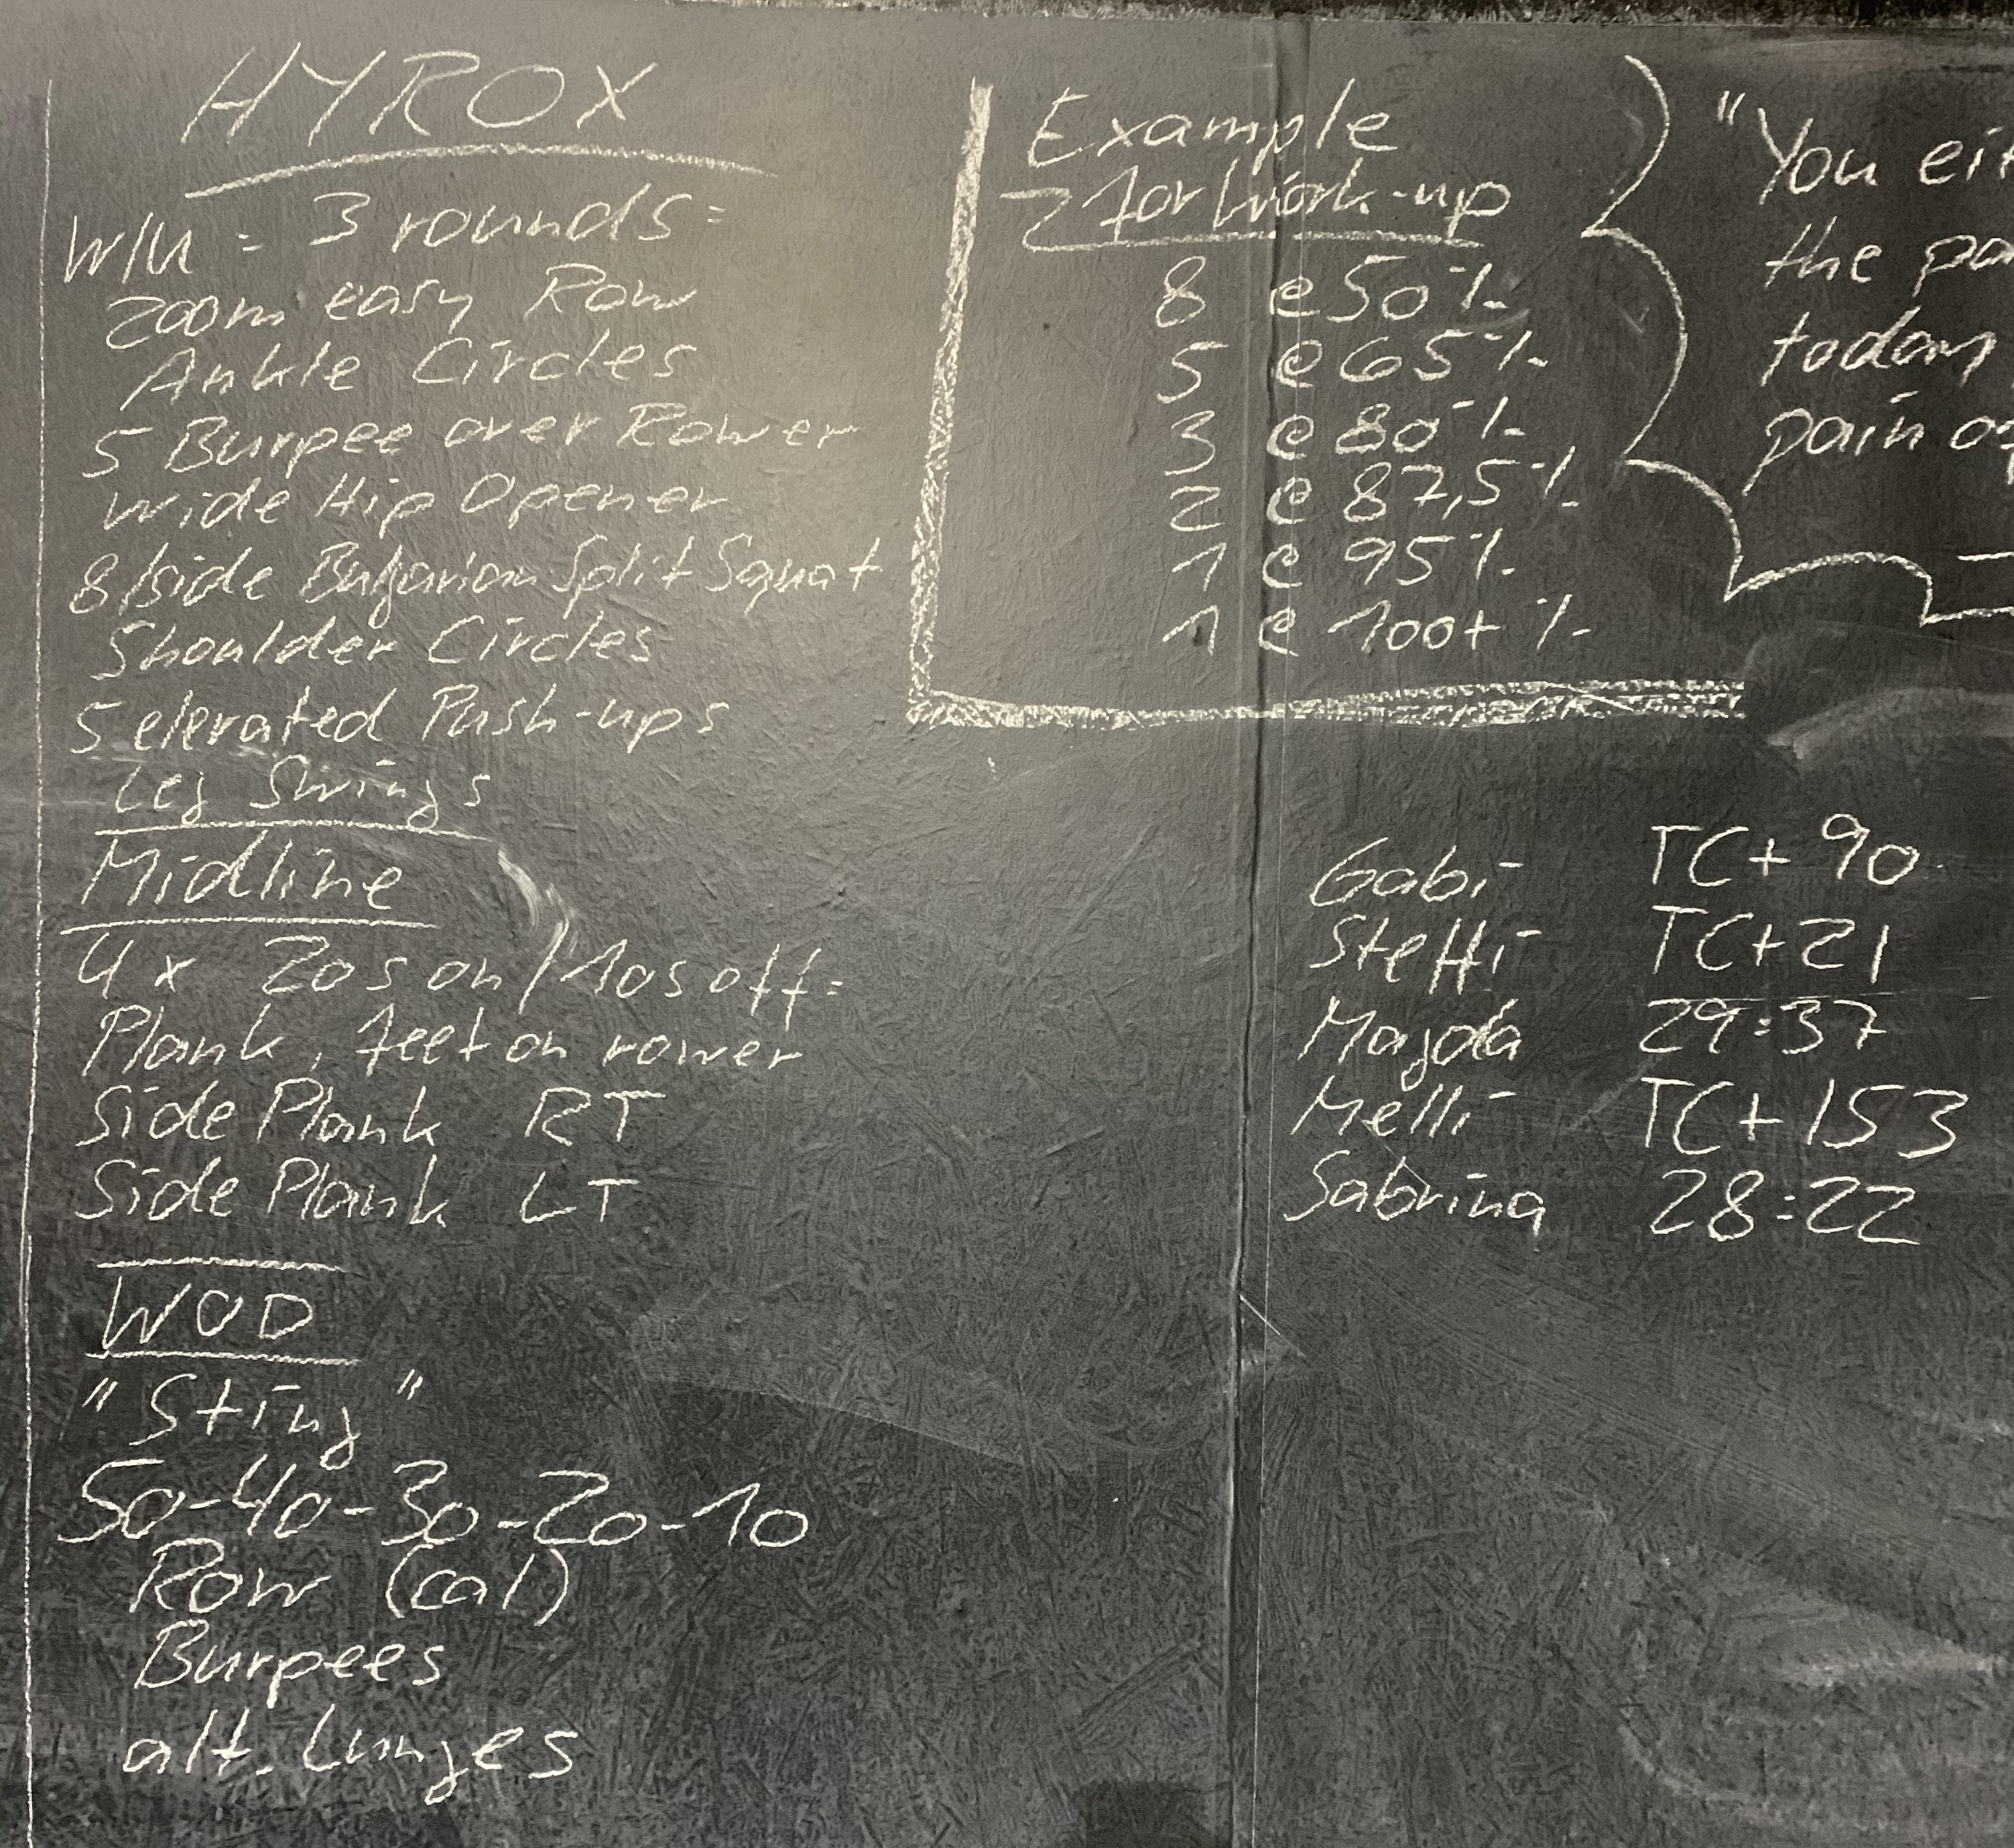 HYROX
W/U = 3 rounds:
200m easy Row
Ankle Circles
5 Burpee over Rower
Wide Hip Opener
8/side Bulgarian Split Squat
Shoulder Circles
5 elevated Push-ups
Leg Swings
Midline
4x 20s on/10s off:
Plank, feet on rower
Side Plank RT
Side Plank LT
WOD
"Sting"
50-40-30-20-10
Row (cal)
Burpees
alt. Lunges
Example
for Work-up
8 @ 50%
5 @ 65%
3 @ 80%
2 @ 87,5%
1 @ 95%
1 @ 100+%
"You
the
today
pain
Gabi TC+90
Steffi TC+21
Magda 29:37
Melli TC+153
Sabrina 28:22